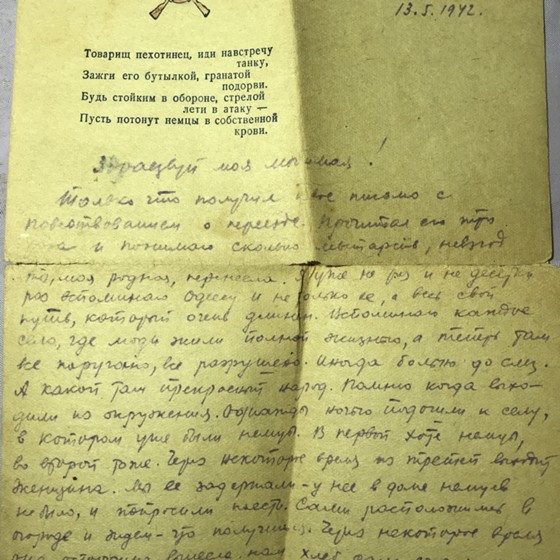 13.5.1942.
Товарищ пехотинец, иди навстречу
танку,
Зажги его бутылкой, гранатой
подорви.
Будь стойким в обороне, стрелой
лети в атаку —
Пусть потонут немцы в собственной
крови.
Здравствуй моя милая!
Только что получил твое письмо с
повествованием о переезде. Почитал его
и понимаю сколько мытарств, невзгод
ты, моя родная, перенесла. Я уже не раз и не десять
раз вспоминаю Одессу и не только ее, а весь свой
путь, который очень длинен. Вспоминаю каждое
село, где люди жили полной жизнью, а теперь там
все поругано, все разрушено. Иногда больно до слез.
А какой там прекрасный народ. Помню когда выхо-
дили из окружения. Однажды ночью подошли к селу,
в котором уже были немцы. В первой хате немцы,
во второй тоже. Через некоторое время из третьей выходит
женщина. Мы ее задержали - у нее в доме немцев
не было, и попросили поесть. Сами расположились в
огороде и ждем - что получится. Через некоторое время
она вынесла нам хлеб